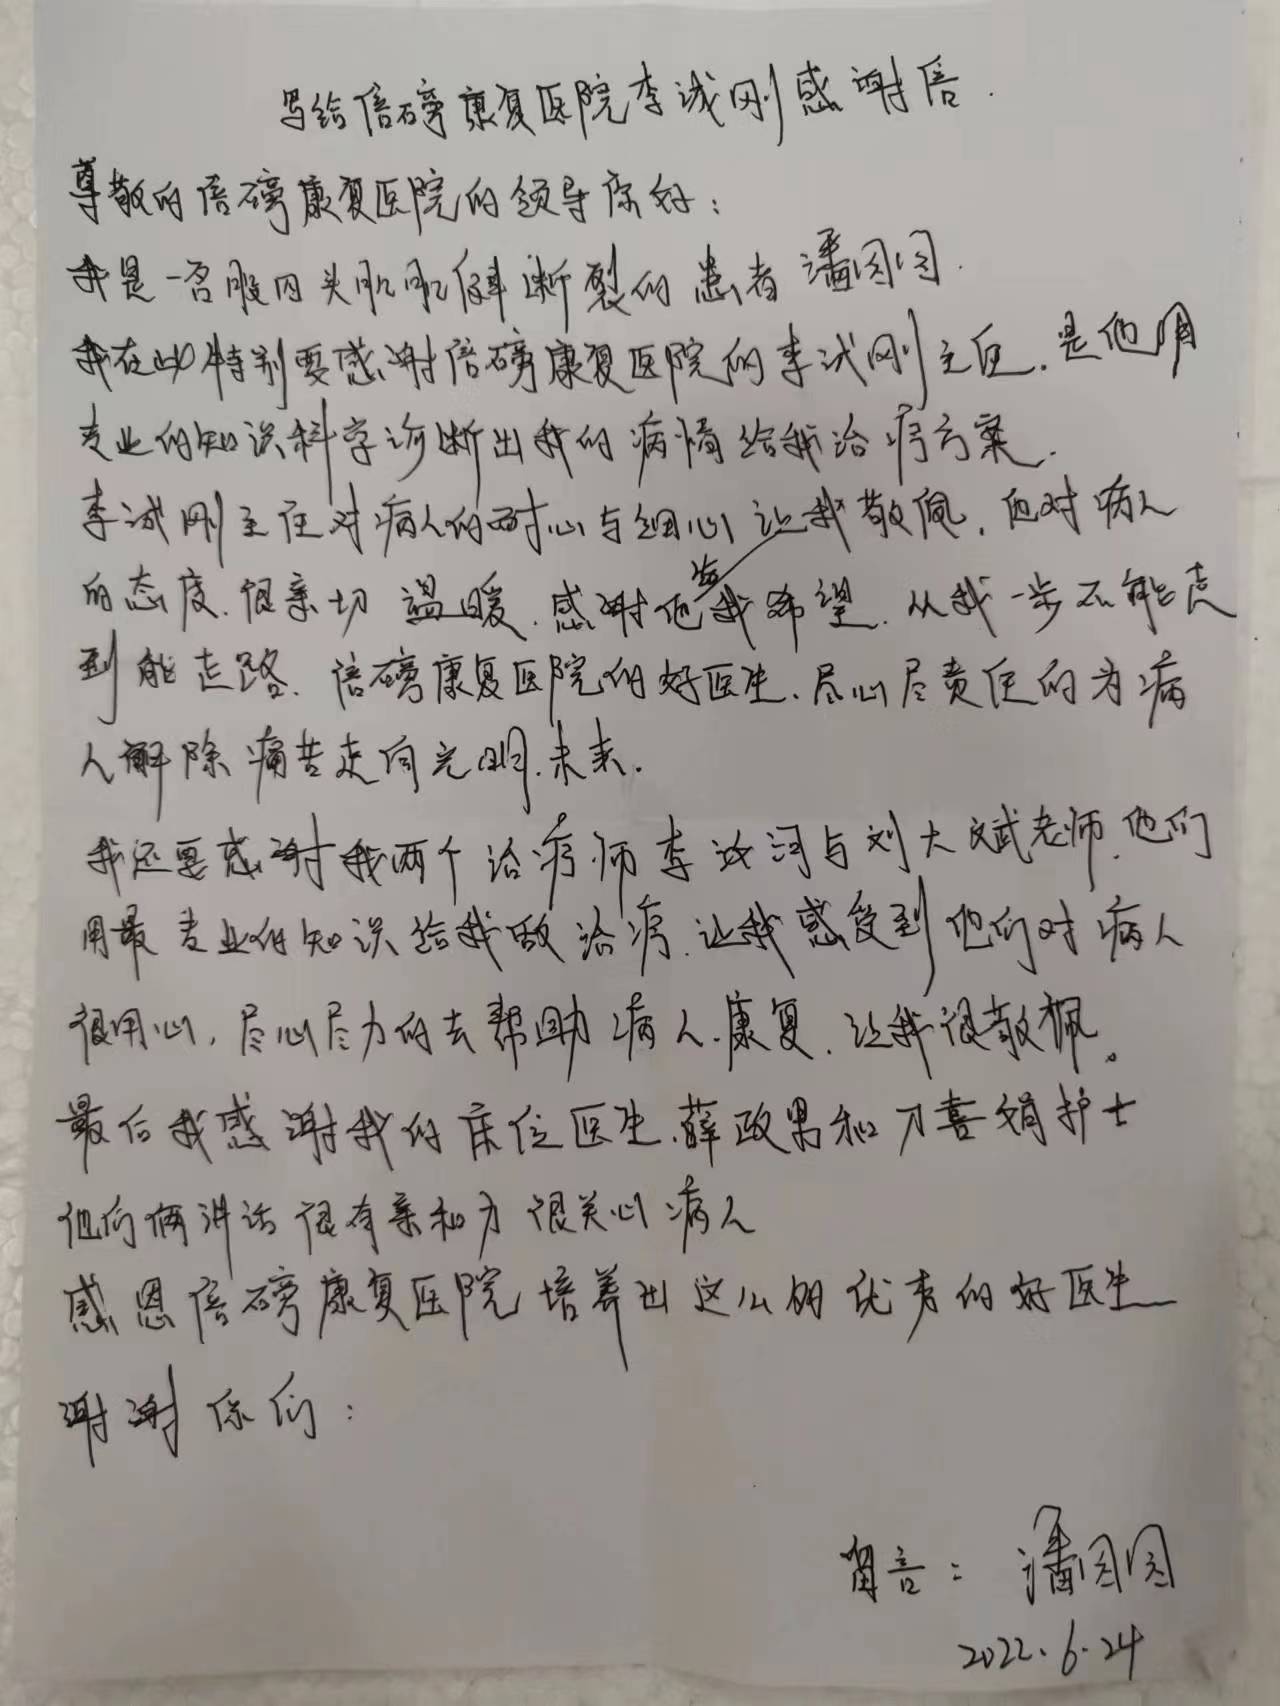 写给倍磅康复医院李诚刚感谢信.
尊敬的倍磅康复医院的领导你好:
我是一名股四头肌肌腱断裂的患者潘园园.
我在此特别要感谢倍磅康复医院的李诚刚主任.是他用
专业的知识科学诊断出我的病情给我治疗方案.
李诚刚主任对病人的耐心与细心让我敬佩.他对病人
的态度.很亲切 温暖.感谢他给我希望.从我一步不能走
到能走路.倍磅康复医院的好医生.尽心尽责任的为病
人解除痛苦走向光明.未来.
我还要感谢我两个治疗师李 与刘大斌老师.他们
用最专业的知识给我做治疗.让我感受到他们对病人
很用心,尽心尽力的去帮助病人.康复.让我很敬佩。
最后我感谢我的床位医生.薛政男和刀喜娟护士
他们俩讲话很有亲和力 很关心病人
感恩倍磅康复医院培养出这么的优秀的好医生
谢谢你们:
留言:潘园园
2022.6.24